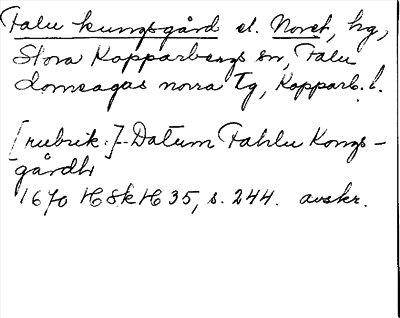 Falu kungsgård el. Noret, hg,
Stora Kopparbergs sn, Falu
domsagas norra tg, Kopparb. l.
[rubrik:] Datum Fahlu Kongs-
gårdh
1670 HSkH 35, s. 244. avskr.